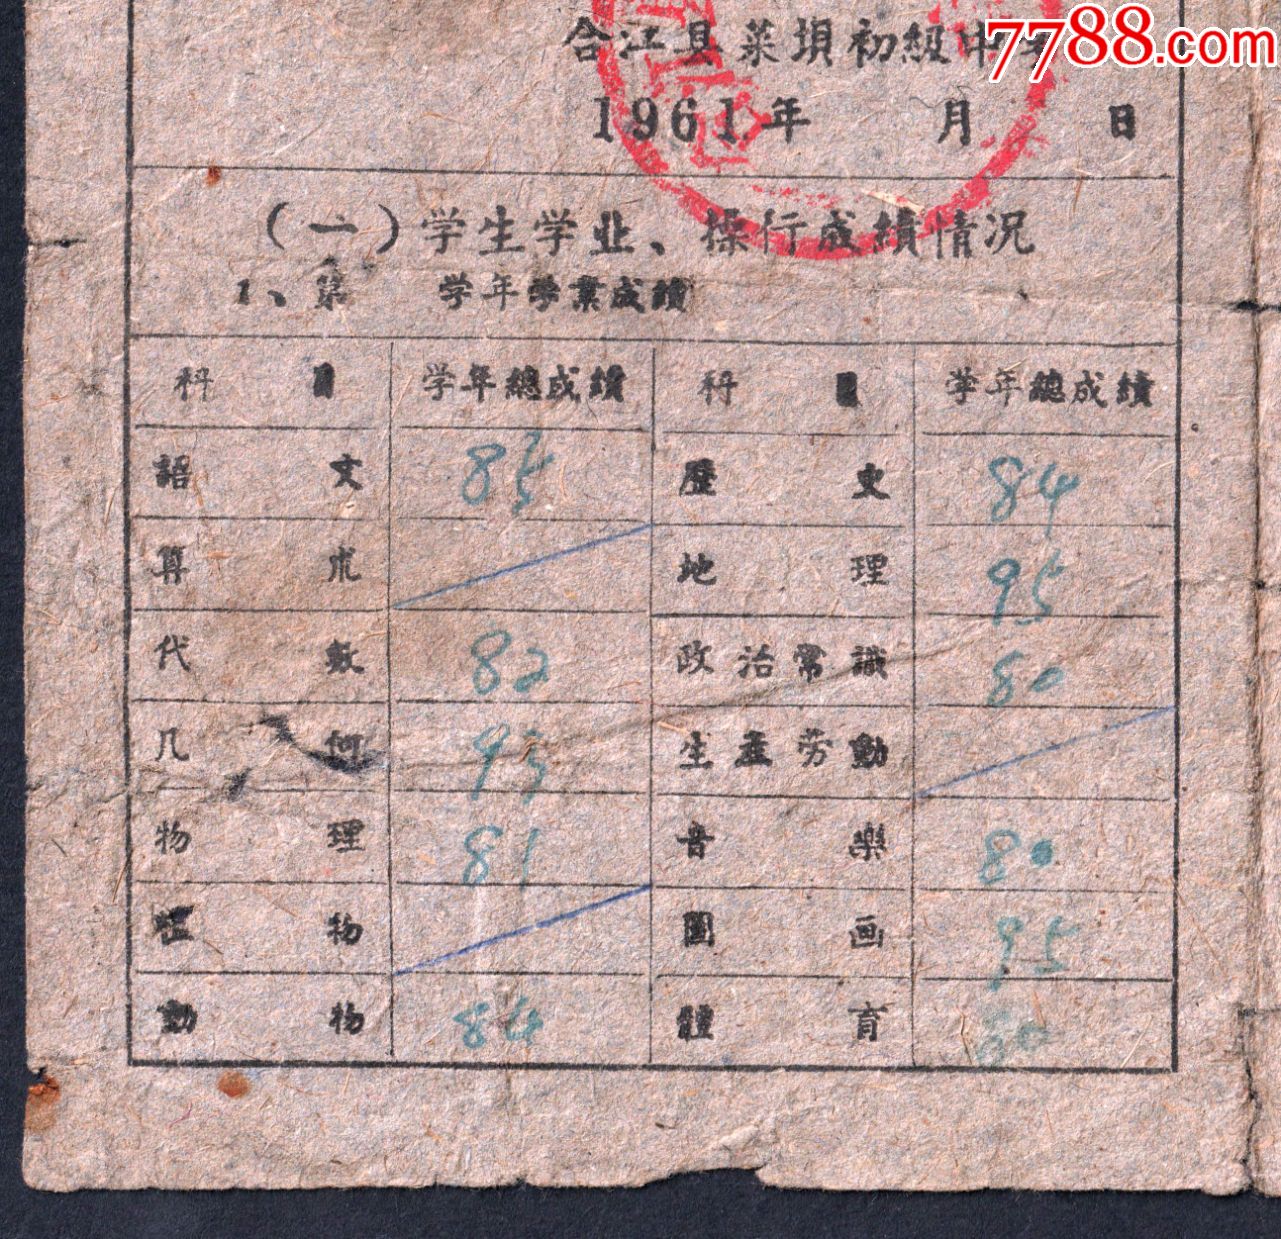 合江县菜垻初級中
7788.com
1961年 月 日
(一)学生学业、操行成績情况
1、第 学年学業成績
科 目 学年總成績 科 目 学年總成績
語 文 85 歷 史 84
算 术 地 理 95
代 数 82 政治常識 80
几 何 93 生產劳動
物 理 81 音 樂 80
植 物 圖 画 95
動 物 84 體 育 80